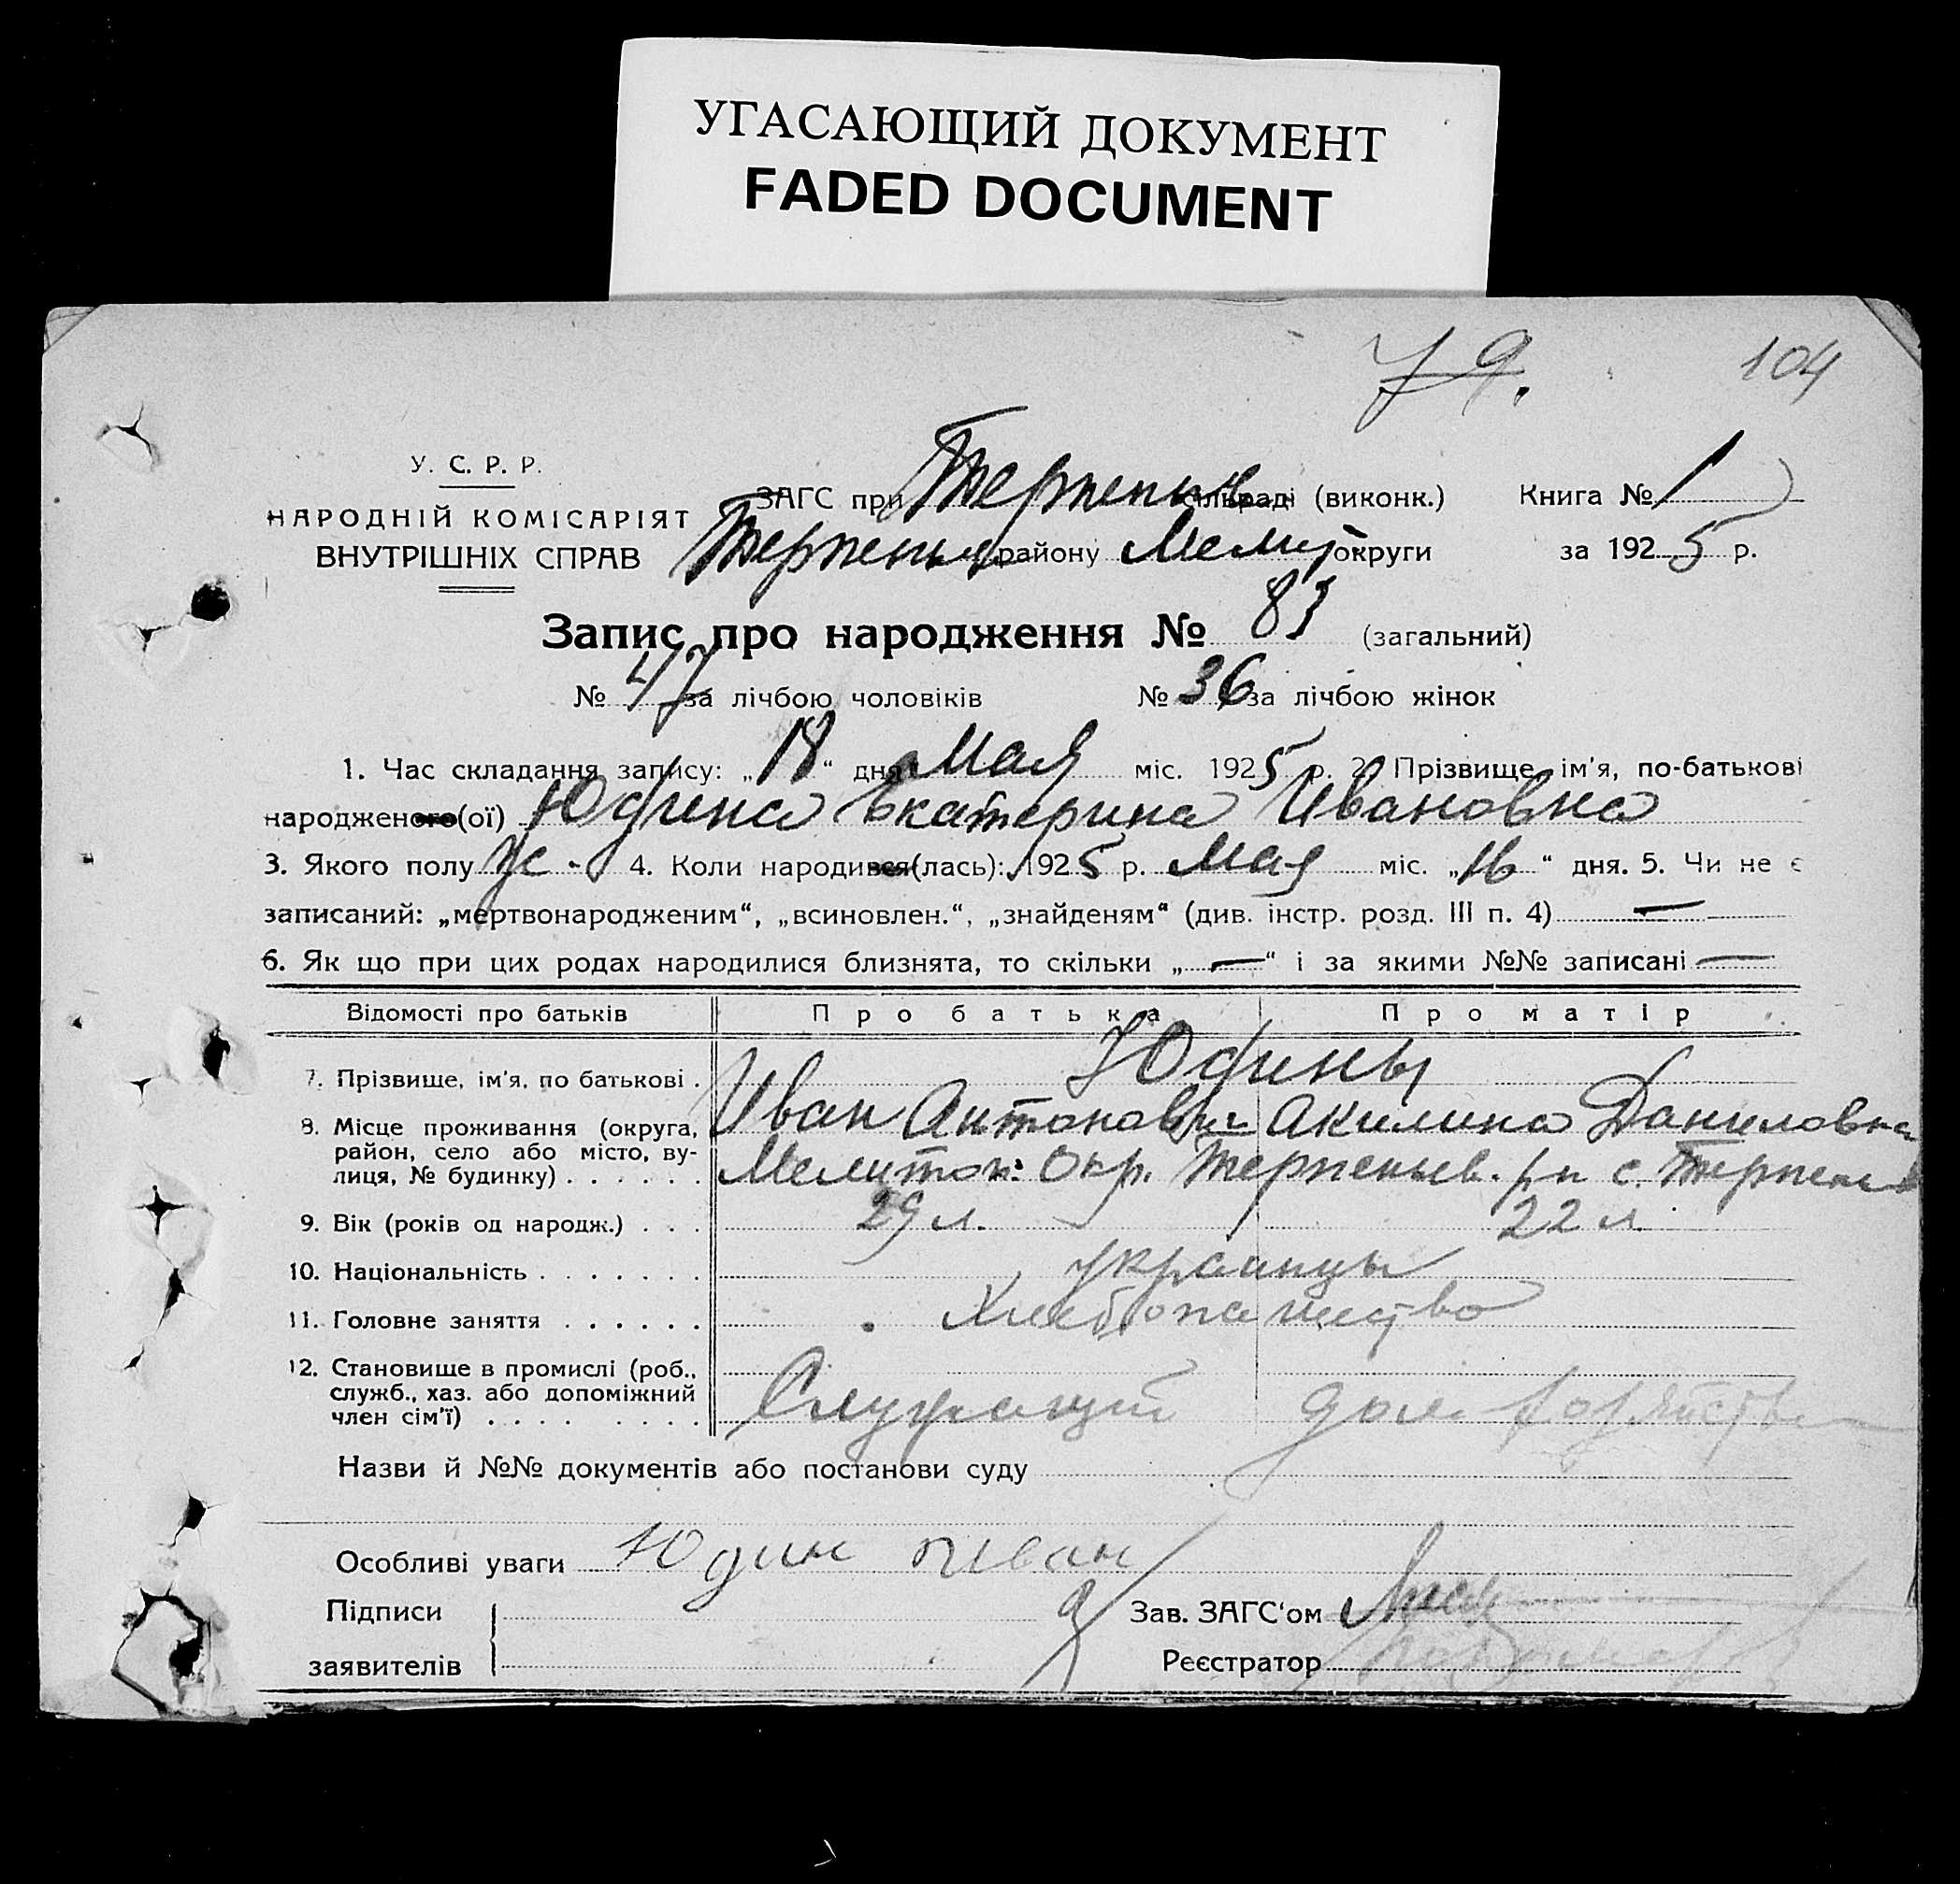 УГАСАЮЩИЙ ДОКУМЕНТ
FADED DOCUMENT
79.
104
У. С. Р. Р.
НАРОДНІЙ КОМІСАРІЯТ
ВНУТРІШНІХ СПРАВ
ЗАГС при Терпеньев сільраді (виконк.) Книга № 1
Терпеньев району Мелит округи за 1925 р.
Запис про народження № 83 (загальний)
№ 47 за лічбою чоловіків № 36 за лічбою жінок
1. Час складання запису: „18“ дня Мая міс. 1925 р. 2. Прізвище, ім'я, по-батькові
народженого(ої) Юдина Екатерина Ивановна
3. Якого полу ж. 4. Коли народився(лась): 1925 р. Мая міс. „16“ дня. 5. Чи не є
записаний: „мертвонародженим“, „всиновлен.“, „знайденям“ (див. інстр. розд. III п. 4) —
6. Як що при цих родах народилися близнята, то скільки „—“ і за якими №№ записані —
Відомості про батьків Про батька Про матір
7. Прізвище, ім'я, по батькові . Юдины
Иван Антонович Акилина Даниловна
8. Місце проживання (округа, район, село або місто, ву-
лиця, № будинку) . . . . . . Мелитоп. Окр. Терпеньев. р-н с. Терпенье
9. Вік (років од народж.) . . . 29 л. 22 л.
10. Національність . . . . . . . украинцы
11. Головне заняття . . . . . . Хлебопашество
12. Становище в промислі (роб.,
служб., хаз. або допоміжний
член сім'ї) . . . . . . . . Служащий дом. хозяйство
Назви й №№ документів або постанови суду
Особливі уваги Юдин Иван
Підписи
заявителів
Зав. ЗАГС'ом
Реєстратор